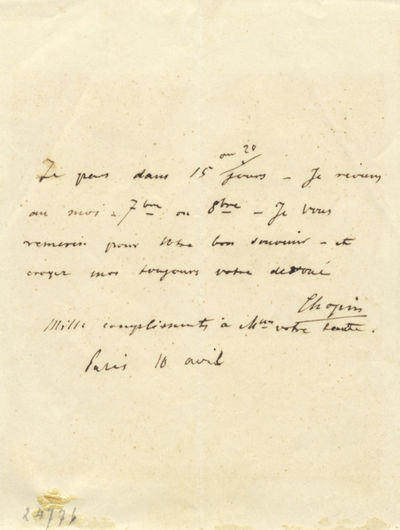 ou 20
Je pars dans 15 jours – Je reviens
au mois 7bre ou 8bre – Je vous
remercie pour votre bon souvenir – et
croyez moi toujours votre devoué
Chopin
Mille complissents à Mme votre tante.
Paris 10 avril